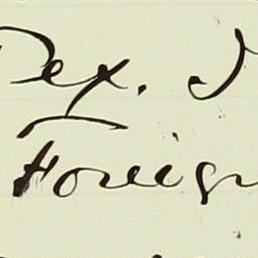 Dex. I
Foreign